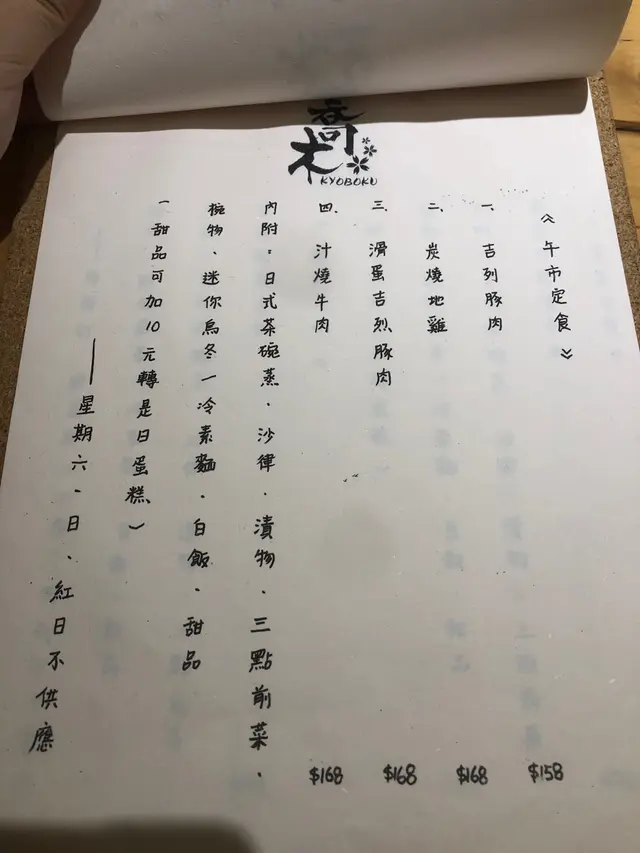 喬木
KYOBOKU
《午市定食》
一、吉列豚肉 $158
二、炭燒地雞 $168
三、滑蛋吉烈豚肉 $168
四、汁燒牛肉 $168
內附：日式茶碗蒸、沙律、漬物、三點前菜、
椀物、迷你烏冬一冷素麵、白飯、甜品
一甜品可加10元轉是日蛋糕）
——星期六、日、紅日不供應